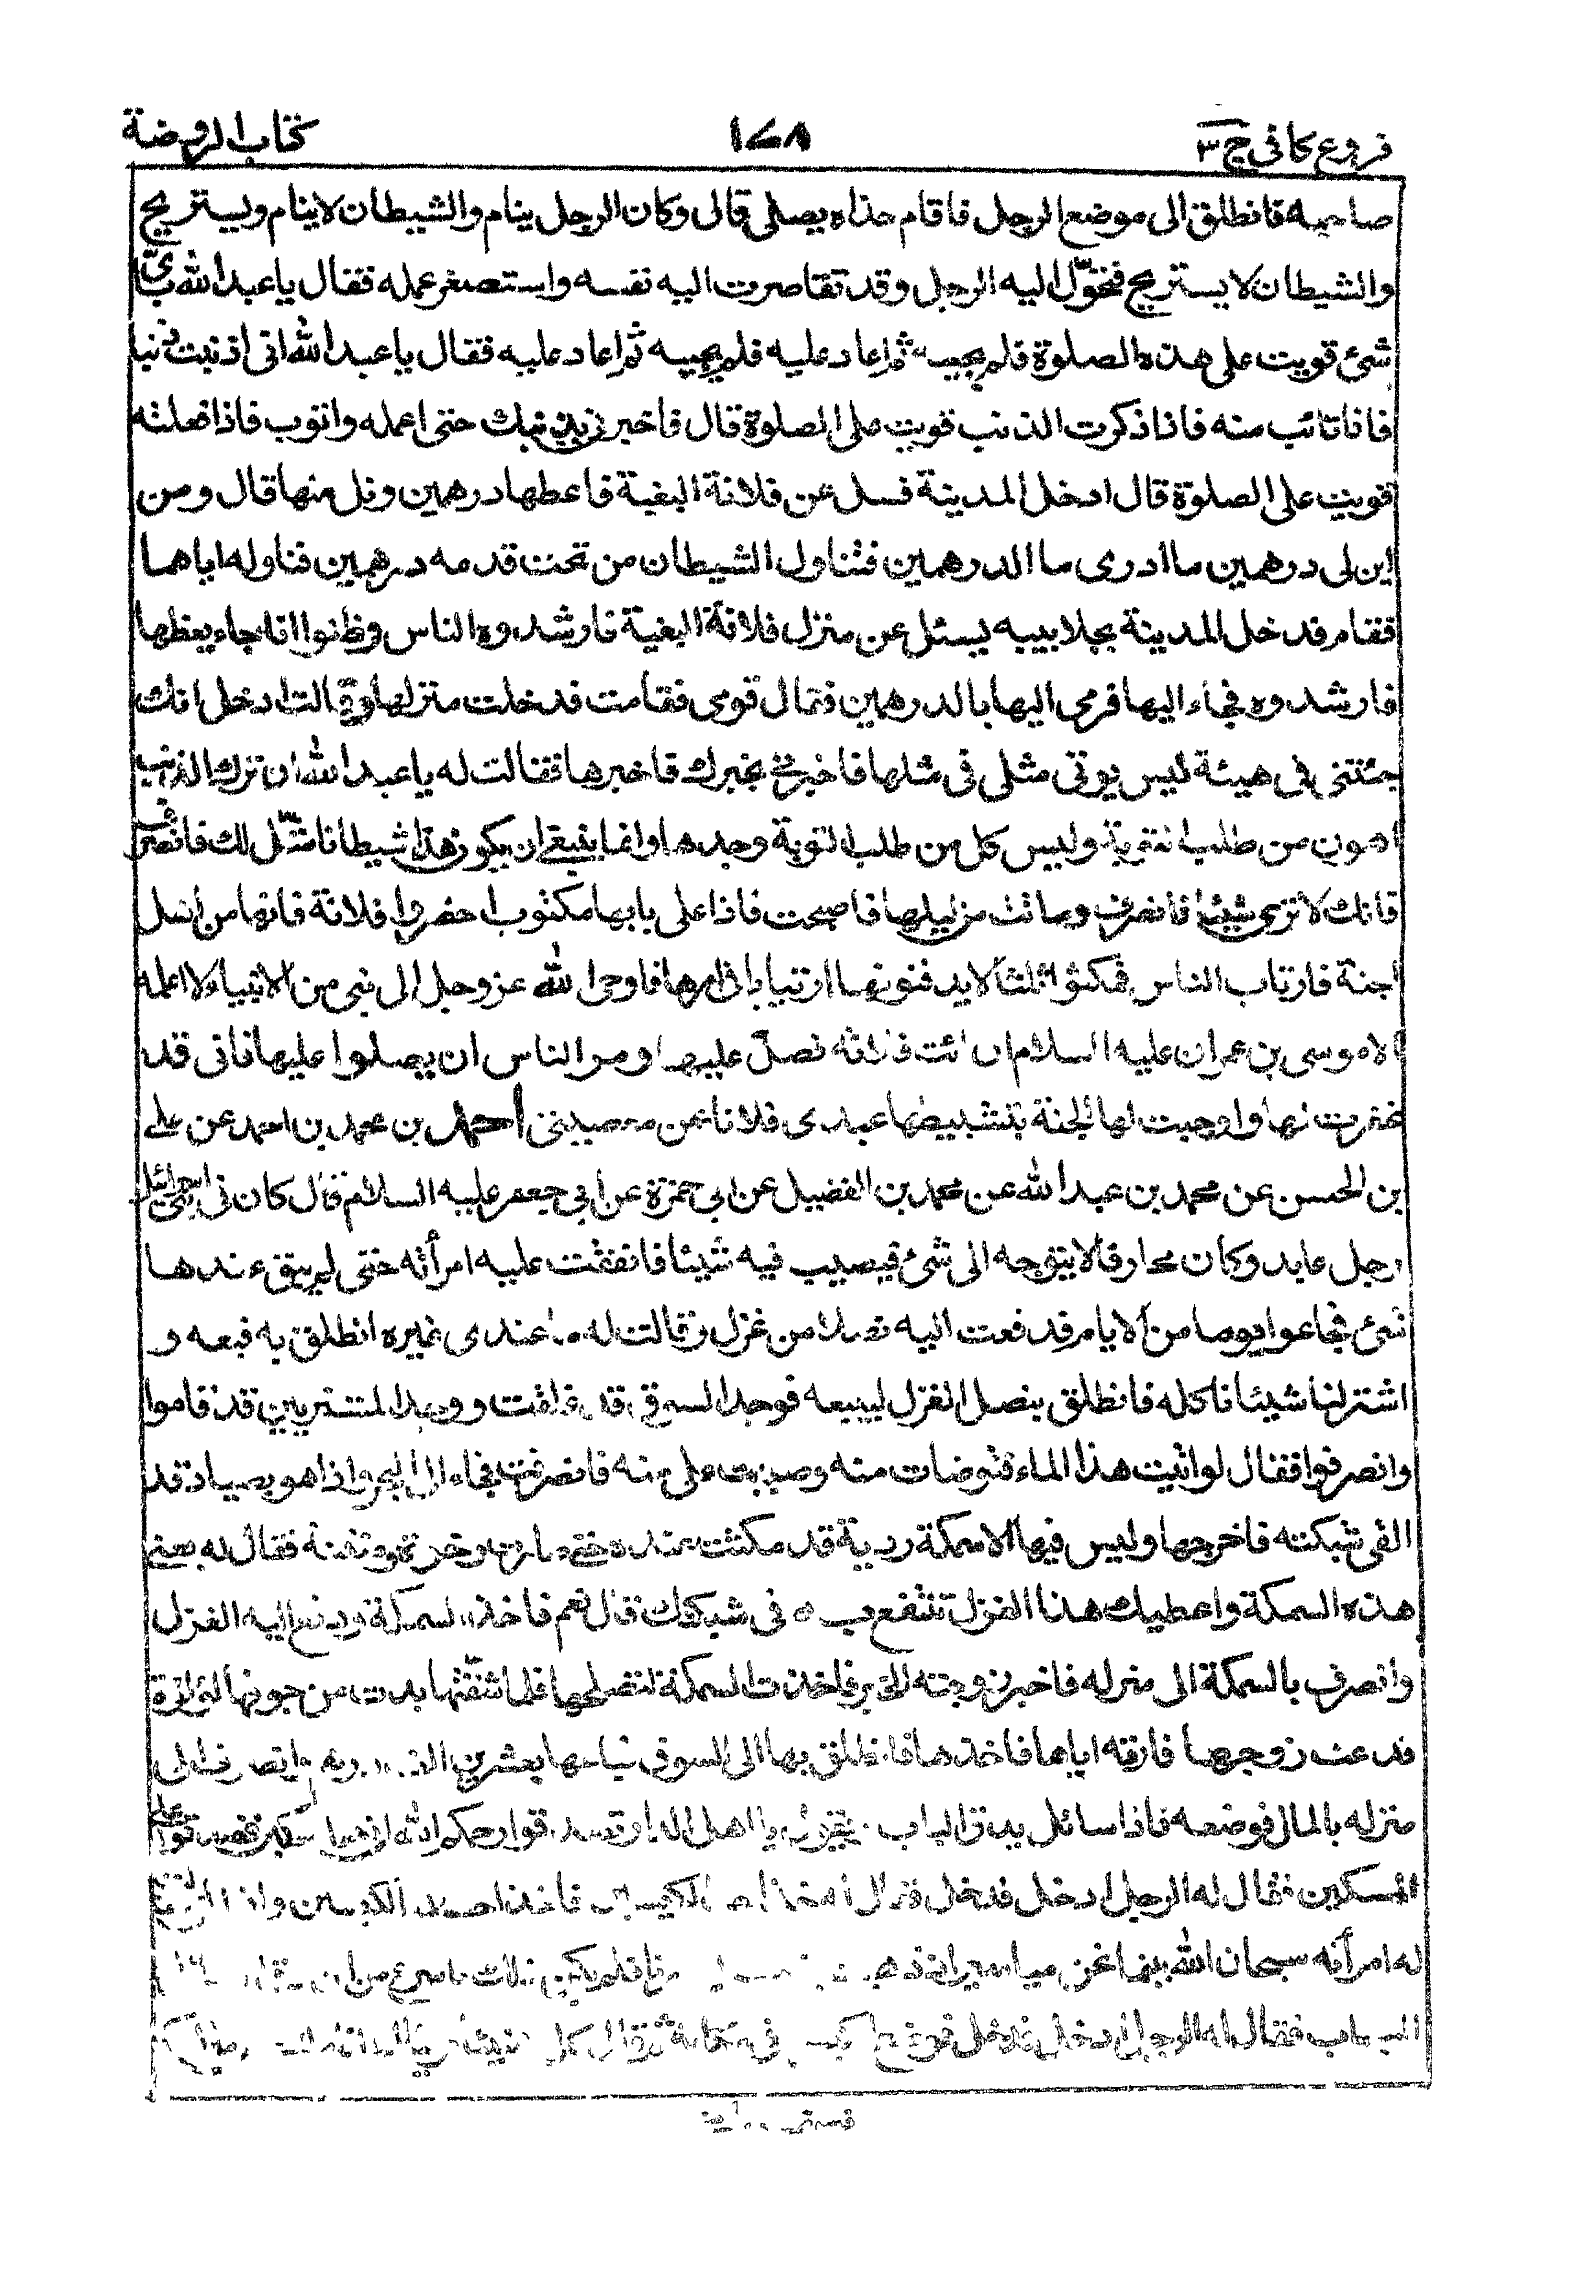 فروع كافى ج ٣
١٧٨
كتاب الروضة
صاحبه فانطلق الى موضع الرجل فاقام حذاه يصلى قال وكان الرجل ينام والشيطان لاينام ويستريح
والشيطان لا يستريح فتحوّل اليه الرجل وقد تقاصرت اليه نفسه واستصغر عمله فقال يا عبد الله باىّ
شئ قويت على هذه الصلوة فلم يجيبه ثم اعاد عليه فلم يجيبه ثم اعاد عليه فقال يا عبد الله انى اذنبت ذنبا
فانا تائب منه فاذا ذكرت الذنب قويت على الصلوة قال فاخبرنى بذنبك حتى اعمله واتوب فاذا فعلته
قويت على الصلوة قال ادخل المدينة فسل عن فلانة البغية فاعطها درهمين ونل منها قال ومن
اين لى درهمين ما ادرى ما الدرهمين فتناول الشيطان من تحت قدمه درهمين فناوله اياهما
فقام فدخل المدينة بجلابيبه يسئل عن منزل فلانة البغية فارشدوه الناس وظنوا انه جاء يعظها
فارشدوه فجاء اليها فرمى اليها بالدرهمين فقال قومى فقامت فدخلت منزلها وقالت ادخل انك
جئتنى فى هيئة ليس يوتى مثلى فى مثلها فاخبرنى بخبرك فاخبرها فقالت له يا عبد الله ان ترك الذنب
اهون من طلب التوبة وليس كل من طلب التوبة وجدها وانما ينبغى ان يكون هذا شيطانا مثّل لك فانصرف
فانك لا ترى شيئا فانصرف وماتت من ليلها فاصبحت فاذا على بابها مكتوب احضروا فلانة فانها من اهل
الجنة فارتاب الناس فمكثوا ثلثا لا يدفنونها ارتيابا فى امرها فاوحى الله عز وجل الى نبى من الانبياء لا اعلمه
الا موسى بن عمران عليه السلام ان ائت فلانة فصلّ عليها ومر الناس ان يصلوا عليها فانى قد
غفرت لها واوجبت لها الجنة بتثبيطها عبدى فلانا عن معصيتى احمد بن محمد بن احمد عن على
بن الحسن عن محمد بن عبد الله عن محمد بن الفضيل عن ابى حمزة عن ابى جعفر عليه السلام قال كان فى بنى اسرائيل
رجل عابد وكان محارفا لا يتوجه الى شئ فيصيب فيه شيئا فانفقت عليه امرأته حتى لم يبق عندها
شئ فجاعوا يوما من الايام فدفعت اليه نصلا من غزل وقالت له ما عندى غيره انطلق به فبعه و
اشتر لنا شيئا ناكله فانطلق بنصل الغزل ليبيعه فوجد السوق قد غلقت ووجد المشتريين قد قاموا
وانصرفوا فقال لو اتيت هذا الماء فتوضات منه وصببت على منه فانصرفت فجاء الى البحر واذا هو بصياد قد
القى شبكته فاخرجها وليس فيها الا سمكة ردية قد مكثت عنده حتى صارت رخوة منتنة فقال له بعنى
هذه السمكة واعطيك هذا الغزل تنتفع به فى شبكتك قال نعم فاخذ السمكة ودفع اليه الغزل
وانصرف بالسمكة الى منزله فاخبر زوجته الخبر فاخذت السمكة لتصلحها فلما شقتها بدت من جوفها لؤلؤة
فدعت زوجها فارته اياها فاخذها فانطلق بها الى السوق فباعها بعشرين الف درهم وانصرف الى
منزله بالمال فوضعه فاذا سائل يدق الباب ويقول يا اهل الدار تصدقوا رحمكم الله على
المسكين فقال له الرجل ادخل فدخل فقال له خذ احد الكيسين فاخذ احد الكيسين وانطلق
له امرأته سبحان الله بينما نحن مياسير اذ ذهبت فلم يكن ذلك باسرع من ان
الباب فقال له الرجل ادخل فدخل فوضع الكيس فى مكانه ثم قال كل